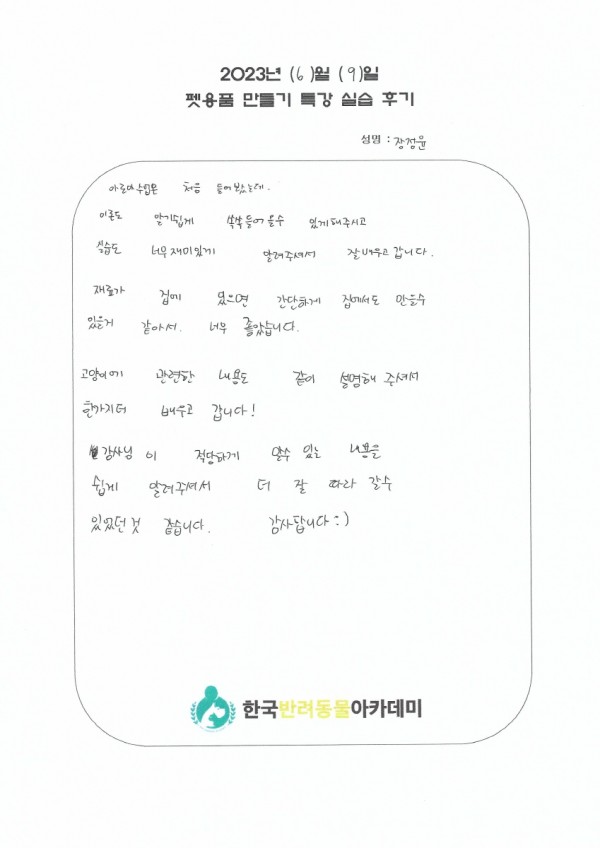 2023년 (6)월 (9)일
펫용품 만들기 특강 실습 후기
성명 : 장정윤
아로마수업은 처음 들어봤는데.
이론도 알기쉽게 쏙쏙들어올수 있게해주시고
실습도 너무재미있게 알려주셔서 잘배우고갑니다.
재료가 집에 있으면 간단하게 집에서도 만들수
있을거 같아서. 너무 좋았습니다.
고양이에 관련한 내용도 같이 설명해 주셔서
한가지더 배우고 갑니다!
강사님이 적당하게 알수 있는 내용을
쉽게 알려주셔서 더 잘 따라 갈수
있었던것 같습니다. 감사합니다:)
한국반려동물아카데미